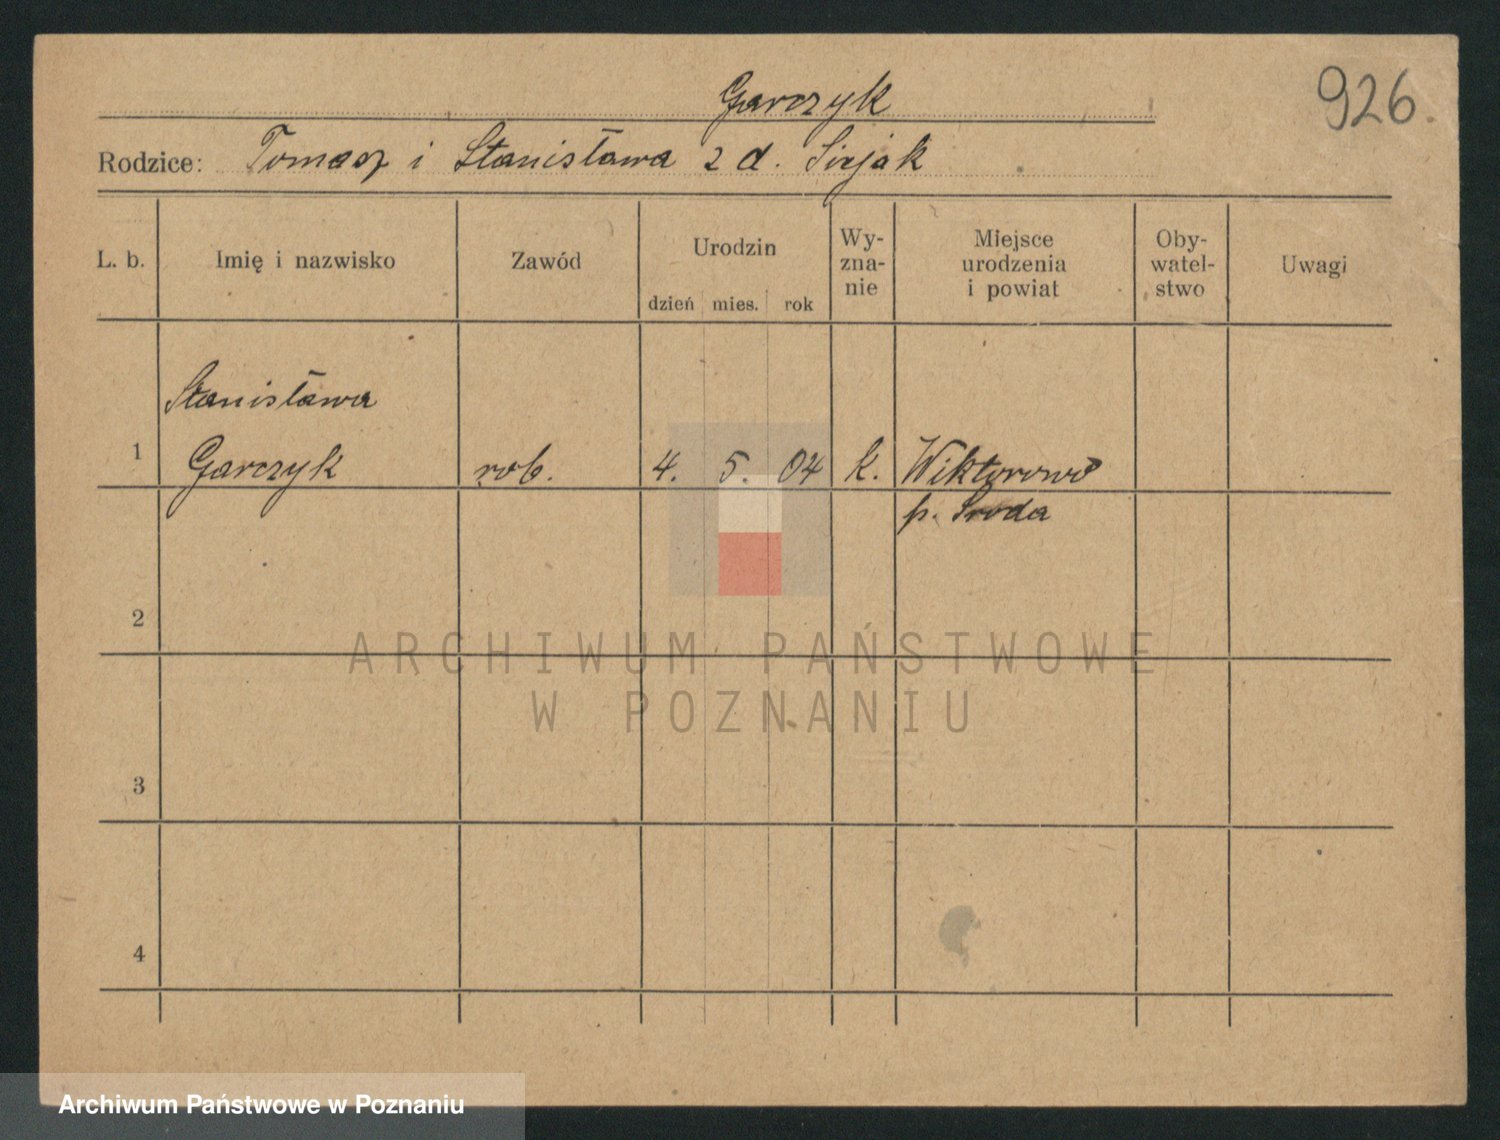 Garczyk
926.
Rodzice: Tomasz i Stanisława z d.
L. b. Imię i nazwisko Zawód Urodzin Wy-zna-nie Miejsce urodzenia i powiat Oby-watel-stwo Uwagi
dzień mies. rok
Stanisława
1 Garczyk rob. 4. 5. 04 k. Wiktorowo
p. Środa
2
ARCHIWUM PAŃSTWOWE
W POZNANIU
3
4
Archiwum Państwowe w Poznaniu